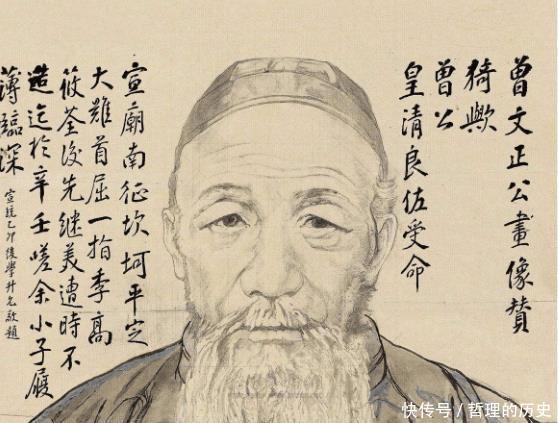 曾文正公畫像贊
猗歟
曾公
皇清良佐受命
宣廟南征坎坷平定
大難首屈一指季高
筱荃後先継美遭時不
造迄於辛壬嗟余小子履
薄臨深
宣統乙卯後學升允敬題
快传号/哲理的历史